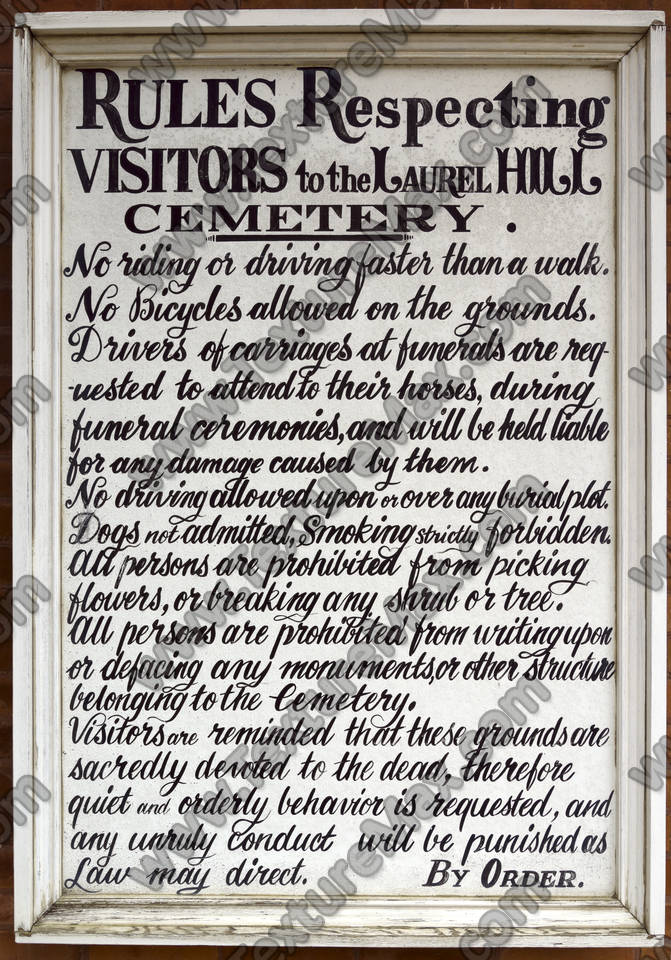 RULES Respecting
VISITORS to the LAUREL HILL
CEMETERY.
No riding or driving faster than a walk.
No Bicycles allowed on the grounds.
Drivers of carriages at funerals are req-
-uested to attend to their horses, during
funeral ceremonies, and will be held liable
for any damage caused by them.
No driving allowed upon or over any burial plot.
Dogs not admitted, Smoking strictly forbidden.
All persons are prohibited from picking
flowers, or breaking any shrub or tree.
All persons are prohibited from writing upon
or defacing any monuments, or other structure
belonging to the Cemetery.
Visitors are reminded that these grounds are
sacredly devoted to the dead, therefore
quiet and orderly behavior is requested, and
any unruly conduct will be punished as
Law may direct. BY ORDER.
www.TextureMax.com
www.TextureMax.com
www.TextureMax.com
www.TextureMax.com